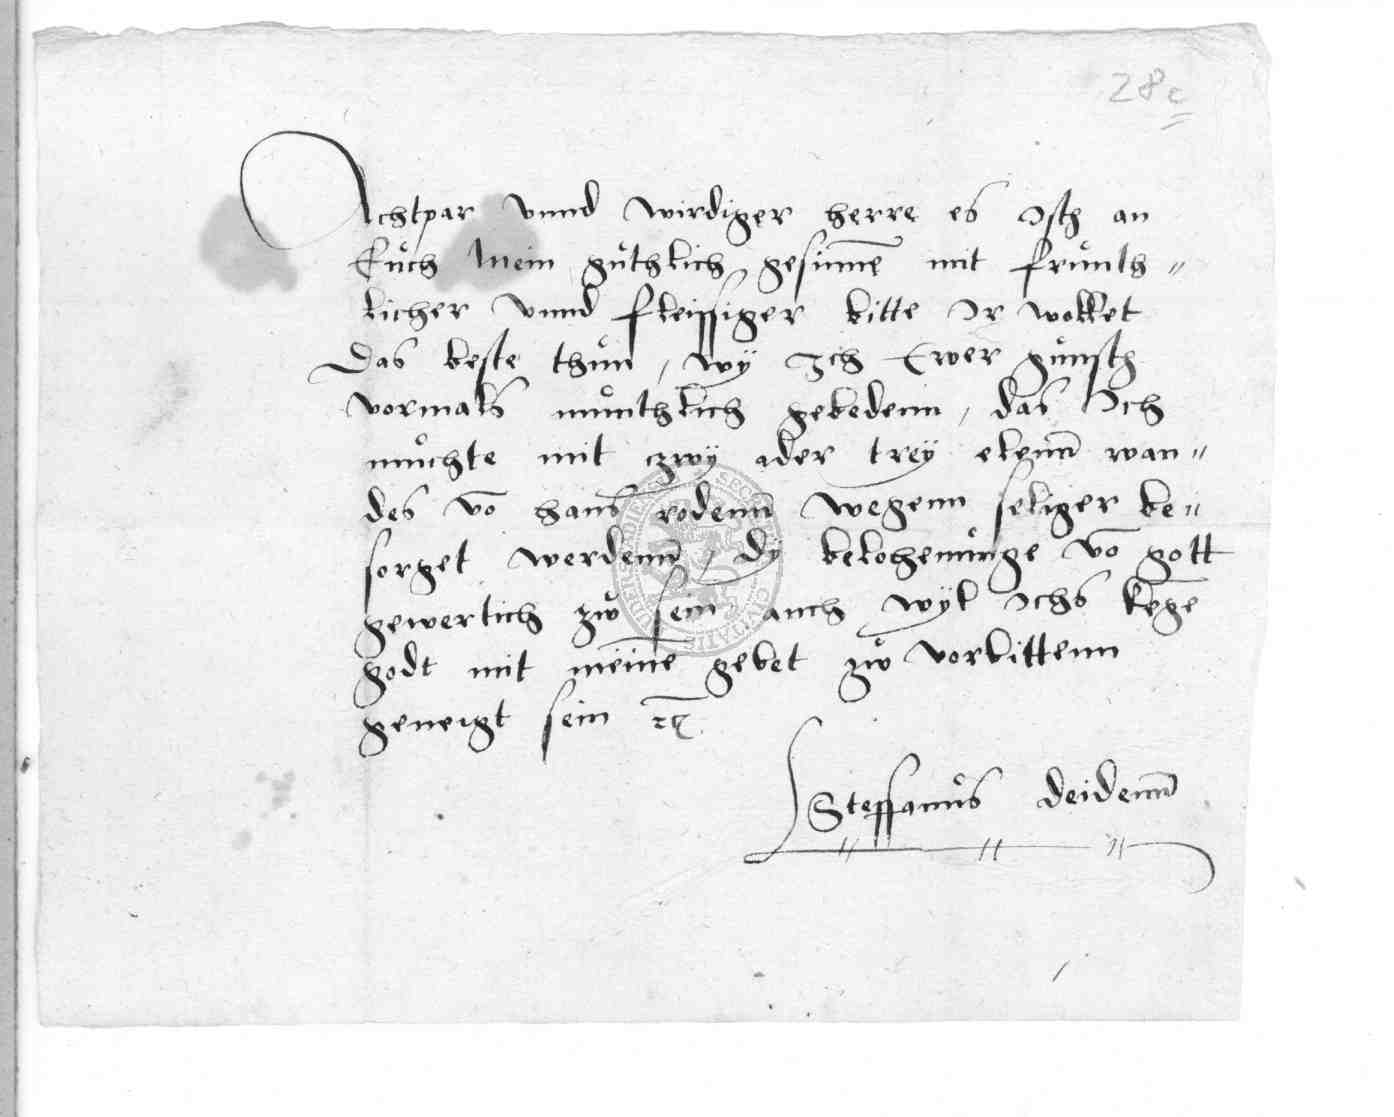 28c
Achtpar vnnd wirdiger herre es Isth an
Eůch Mein gůthlich gesinnē mit frůnth-
licher vnnd fleissiger bitte Ir wollet
Das beste thůn, wÿ Ich Ewer gůnsth
vormals můnthlich gebedenn, das Ich
můchte mit czwÿ ader treÿ elenn wan-
des vō hans rodenn wegenn seliger be-
sorget werdenn, dÿ belohenůnge vō gott
gewertich zů sein auch wÿl Ichs kegē
godt mit meinē gebet zů vorbittenn
geneigt sein ꝛc
Steffanůs deidenn